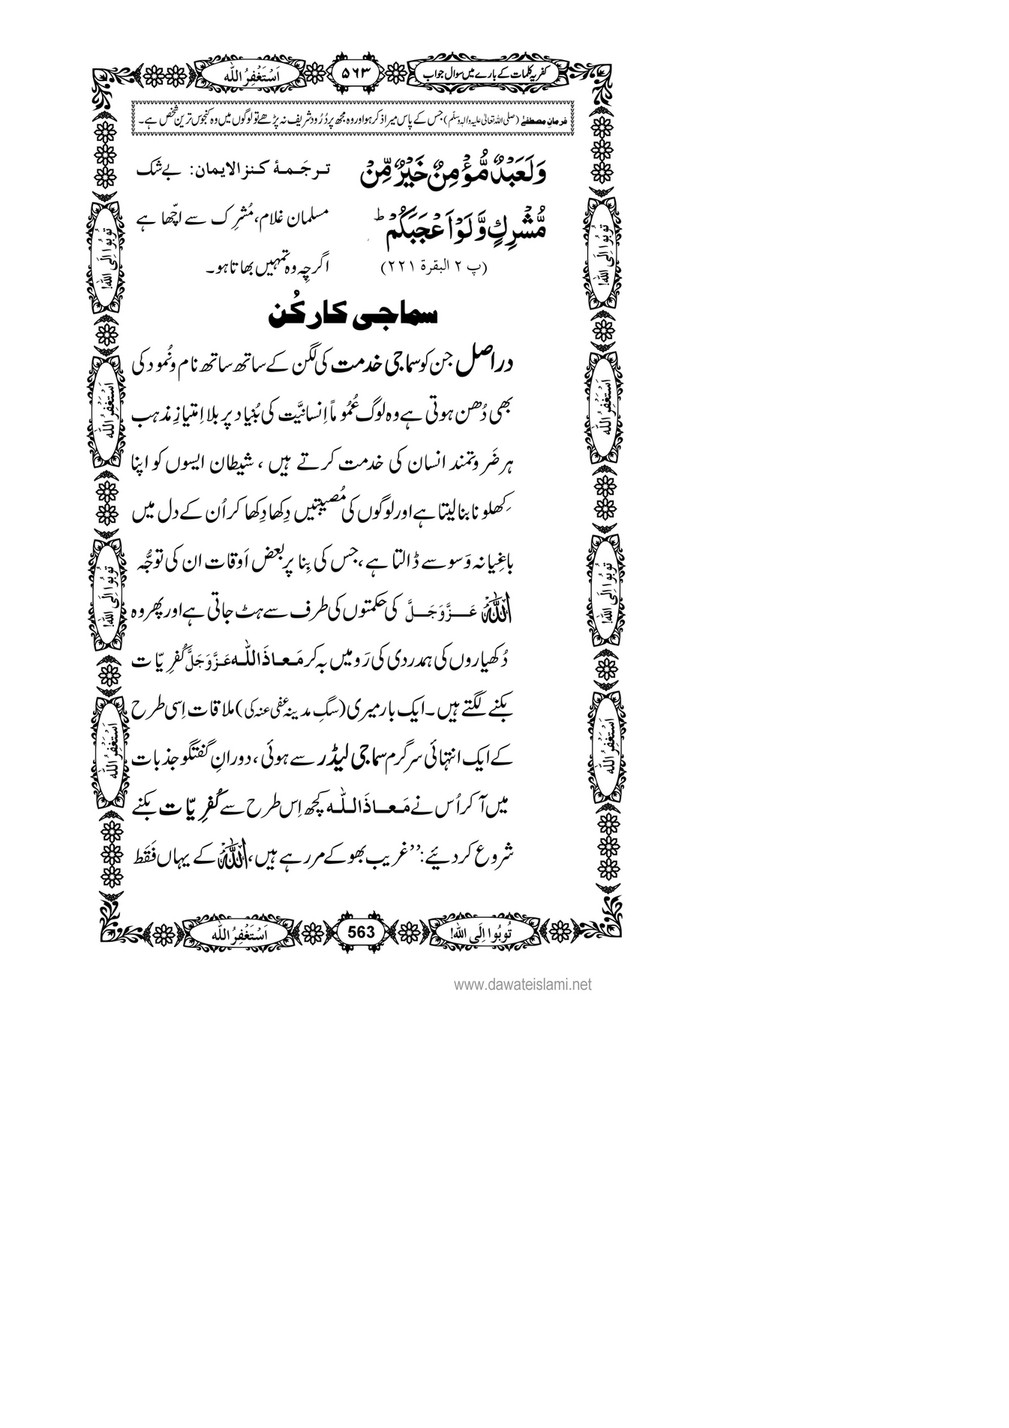 کفریہ کلمات کے بارے میں سوال جواب ۵۶۳ اَسْتَغْفِرُ اللّٰه
فرمانِ مصطفےٰ (صلی اللہ تعالیٰ علیہ والہٖ وسلّم) جس کے پاس میرا ذکر ہو اور وہ مجھ پر دُرُود شریف نہ پڑھے تو لوگوں میں وہ کنجوس ترین شخص ہے۔
وَلَعَبْدٌ مُّؤْمِنٌ خَيْرٌ مِّنْ
مُّشْرِكٍ وَّلَوْ اَعْجَبَكُمْ ؕ
(پ ۲ البقرة ۲۲۱)
ترجَمۂ کنز الایمان: بے شک
مسلمان غلام، مُشرِک سے اچّھا ہے
اگرچِہ وہ تمہیں بھاتا ہو۔
سماجی کارکُن
دراصل جن کو سماجی خدمت کی لگن کے ساتھ ساتھ نام و نُمود کی
بھی دُھن ہوتی ہے وہ لوگ عُمُوماً اِنسانیَّت کی بُنیاد پر بلا اِمتیازِ مذہب
ہر ضَروتمند انسان کی خدمت کرتے ہیں، شیطان ایسوں کو اپنا
کِھلونا بنا لیتا ہے اور لوگوں کی مُصیبتیں دِکھا دِکھا کر اُن کے دل میں
باغِیانہ وَسوسے ڈالتا ہے، جس کی بِنا پر بعض اَوقات ان کی توجُّہ
اللّٰہُ عَزَّوَجَلَّ کی حکمتوں کی طرف سے ہٹ جاتی ہے اور پھر وہ
دُکھیاروں کی ہمدردی کی رَو میں بہ کر مَعاذَاللّٰه عَزَّوَجَلَّ کُفرِیّات
بکنے لگتے ہیں۔ ایک بار میری (سگِ مدینہ عفی عنہ کی) ملاقات اِسی طرح
کے ایک انتہائی سرگرم سماجی لیڈر سے ہوئی، دورانِ گفتگو جذبات
میں آ کر اُس نے مَعاذَاللّٰه کچھ اِس طرح سے کُفرِیّات بکنے
شروع کر دیئے: ’’غریب بھوکے مر رہے ہیں، اللّٰہُ کے یہاں فَقَط
تُوبُوا اِلَی اللّٰه! 563 اَسْتَغْفِرُ اللّٰه
تُوبُوا اِلَی اللّٰه!
اَسْتَغْفِرُ اللّٰه
تُوبُوا اِلَی اللّٰه!
اَسْتَغْفِرُ اللّٰه
تُوبُوا اِلَی اللّٰه!
اَسْتَغْفِرُ اللّٰه
تُوبُوا اِلَی اللّٰه!
اَسْتَغْفِرُ اللّٰه
www.dawateislami.net